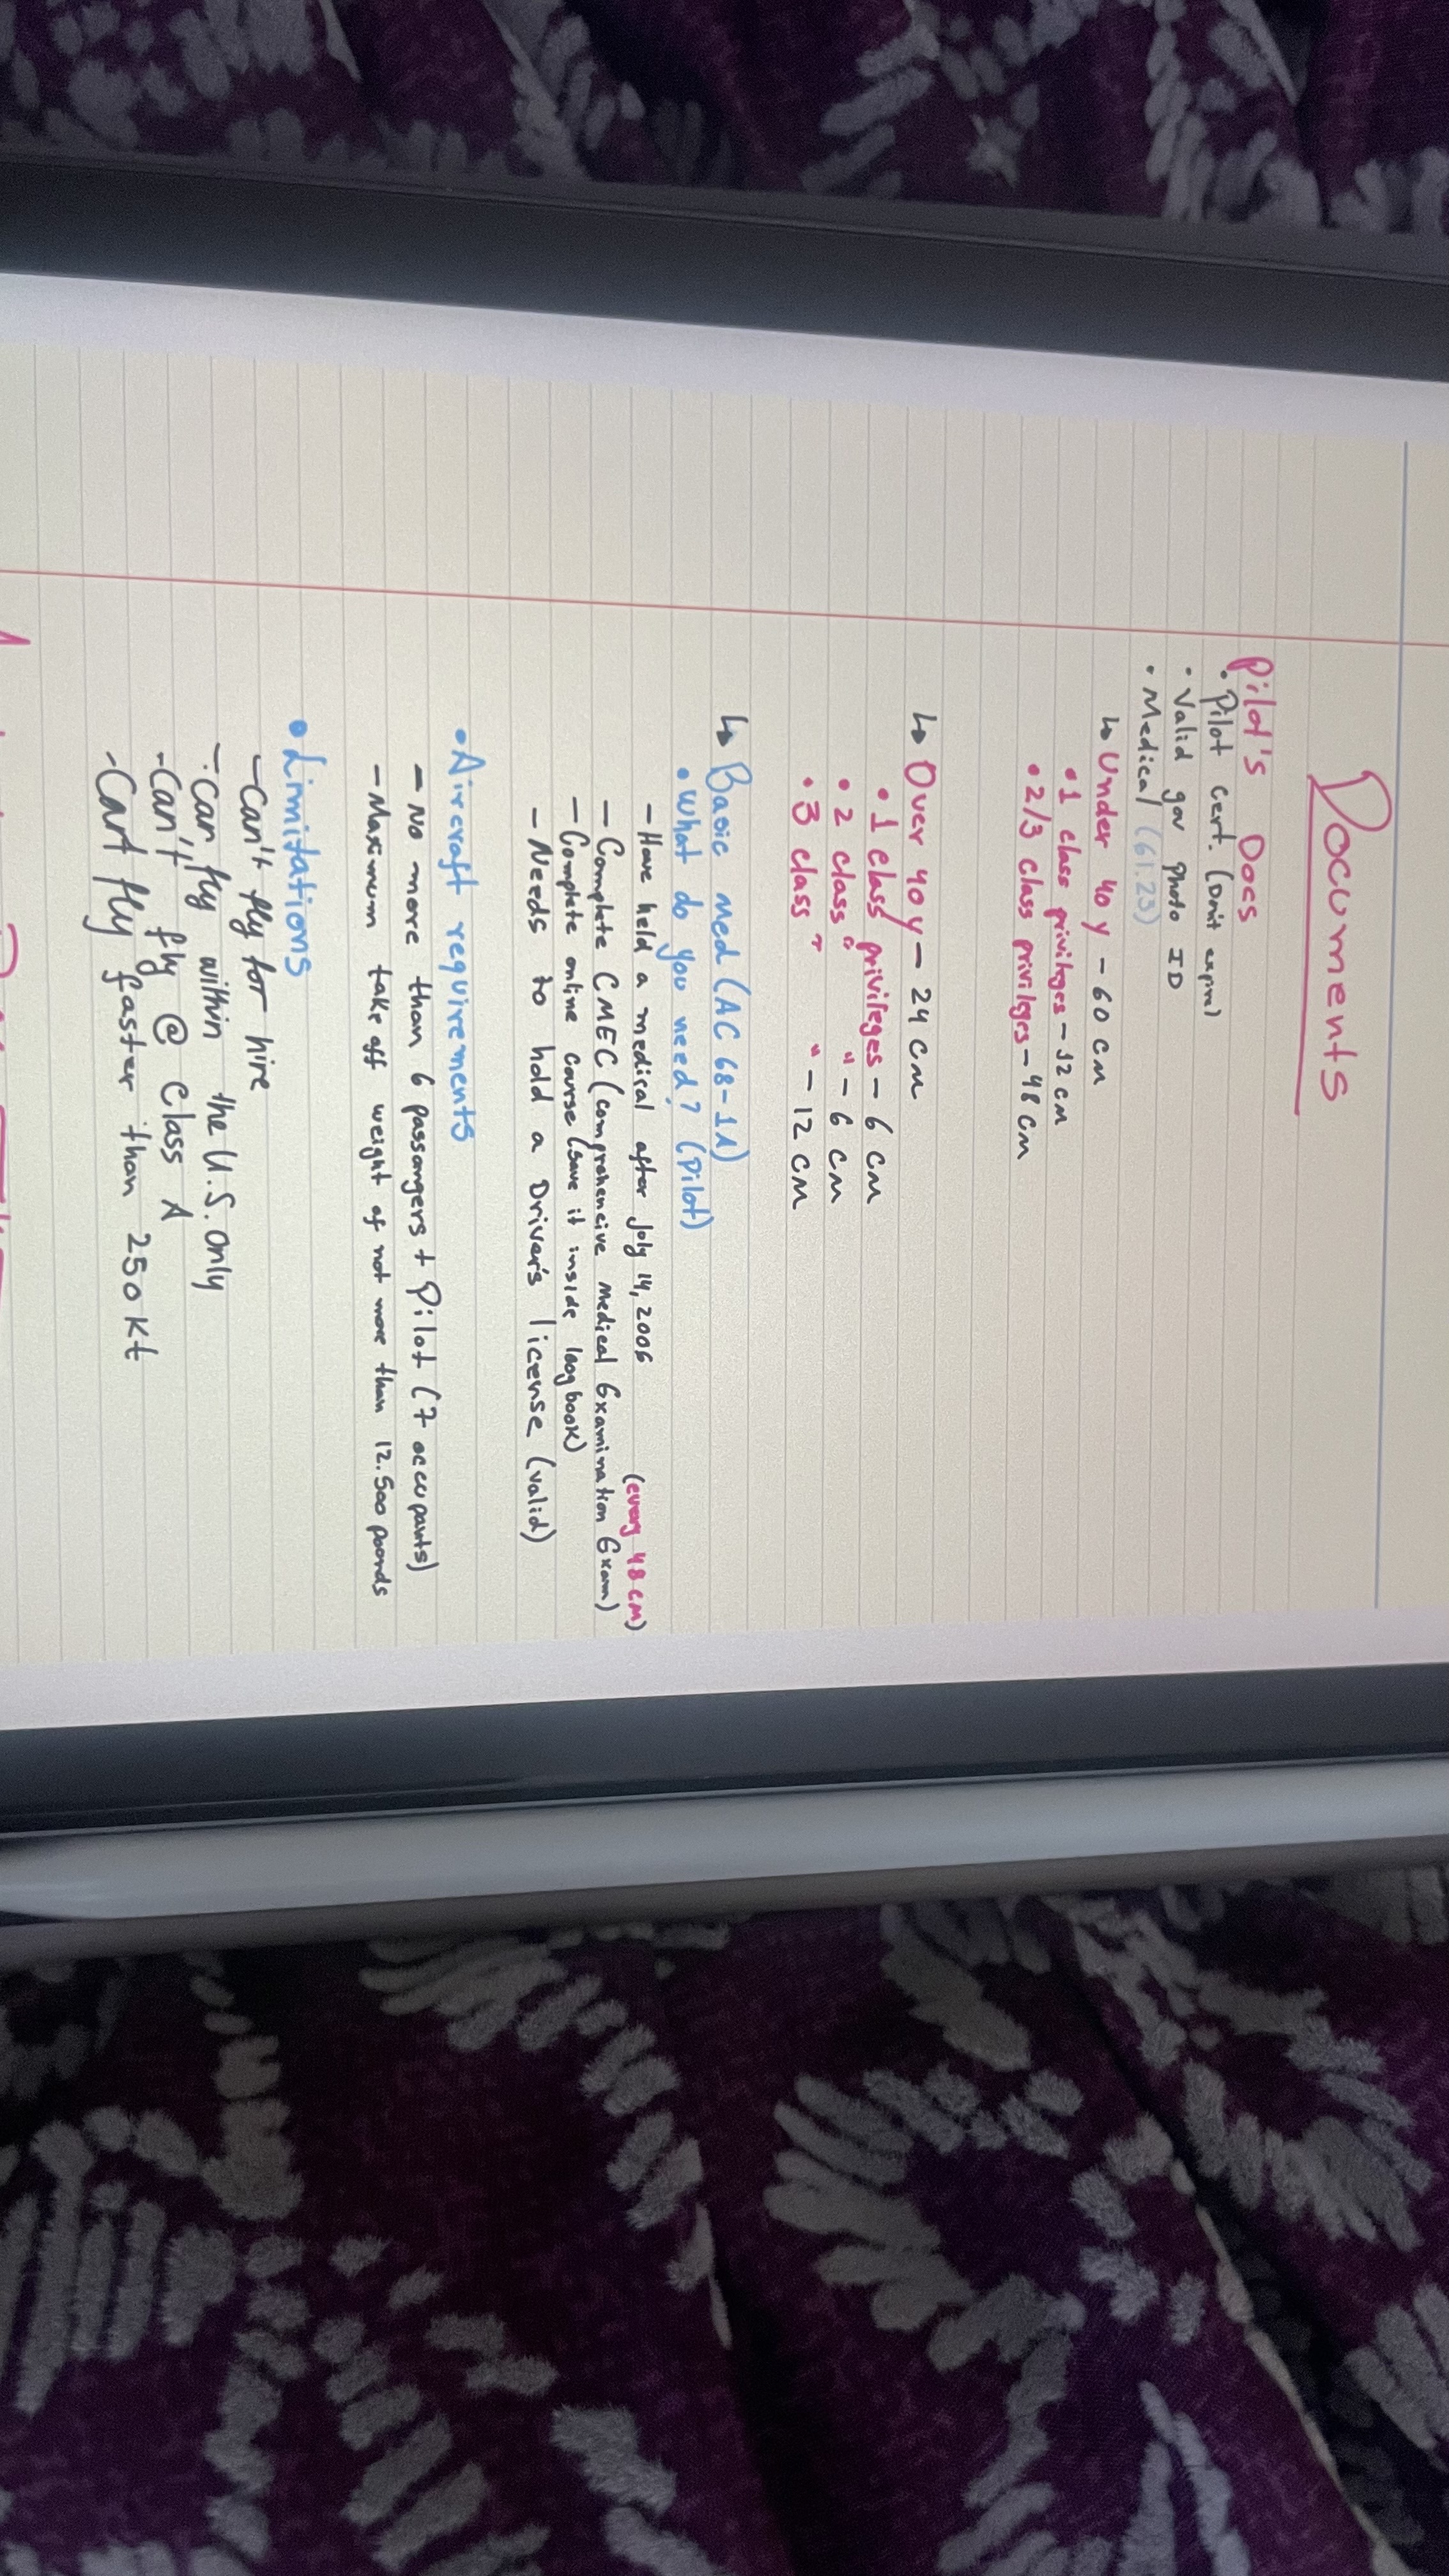 Documents
Pilot's Docs
• Pilot cert. (Don't expire)
• Valid gov photo ID
• Medical (61.23)
↳ Under 40y - 60 CM
• 1 class privileges - 12 CM
• 2/3 class privileges - 48 CM
↳ Over 40y - 24 CM
• 1 class privileges - 6 CM
• 2 class " " - 6 CM
• 3 class " " - 12 CM
↳ Basic Med (AC 68-1A)
• What do you need? (Pilot)
- Have held a medical after joly 14, 2006
(every 48 CM)
- Complete CMEC (comprehencive medical Examination Exam)
- Complete online course (save it inside loogbook)
- Needs to hold a Driver's license (valid)
• Aircraft requirements
- No more than 6 passangers + Pilot (7 occupants)
- Maximum take off weight of not more than 12.500 pounds
• Limitations
- Can't fly for hire
- Can fly within the U.S. only
- Can't fly @ class A
- Cant fly faster than 250 Kt